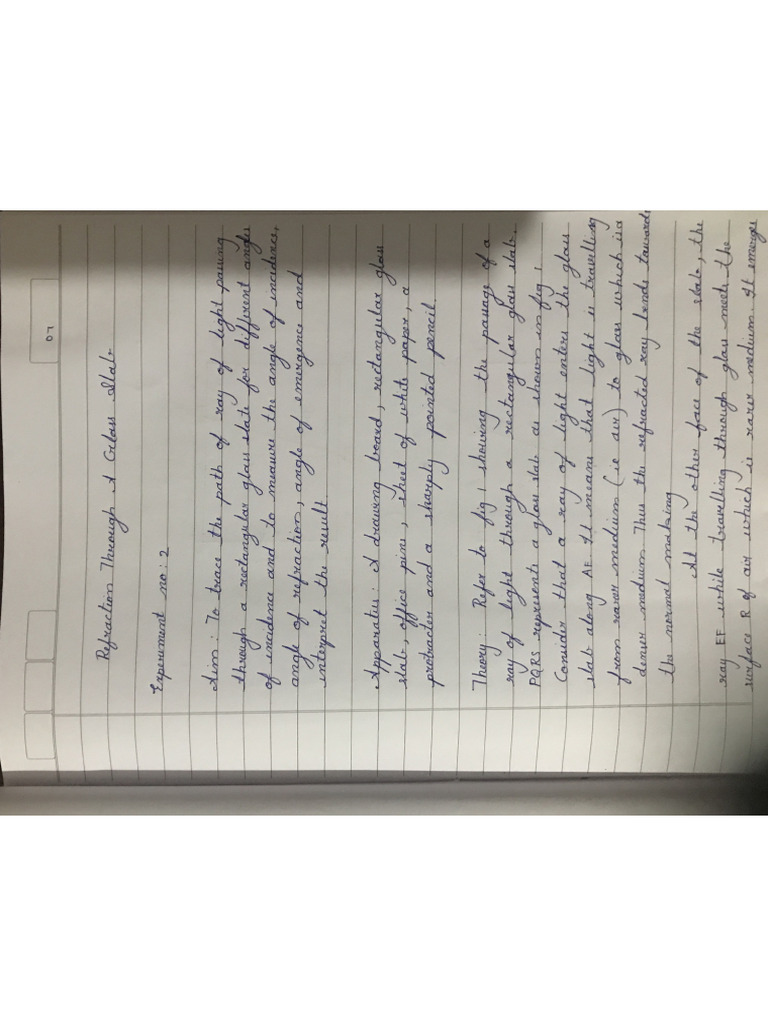 07
Refraction Through A Glass Slab
Experiment no: 2
Aim: To trace the path of ray of light passing
through a rectangular glass slab for different angles
of incidence and to measure the angle of incidence,
angle of refraction, angle of emergence and
interpret the result.
Apparatus: A drawing board, rectangular glass
slab, office pins, sheet of white paper, a
protracter and a sharply pointed pencil.
Theory: Refer to fig 1 showing the passage of a
ray of light through a rectangular glass slab.
PQRS represents a glass slab as shown in fig 1
Consider that a ray of light enters the glass
slab along AE. It means that light is travelling
from rarer medium (ie air) to glass which is a
denser medium. Thus the refracted ray bends towards
the normal making
At the other face of the slab, the
ray EF while travelling through glass meets the
surface R of air which is rarer medium. It emerges